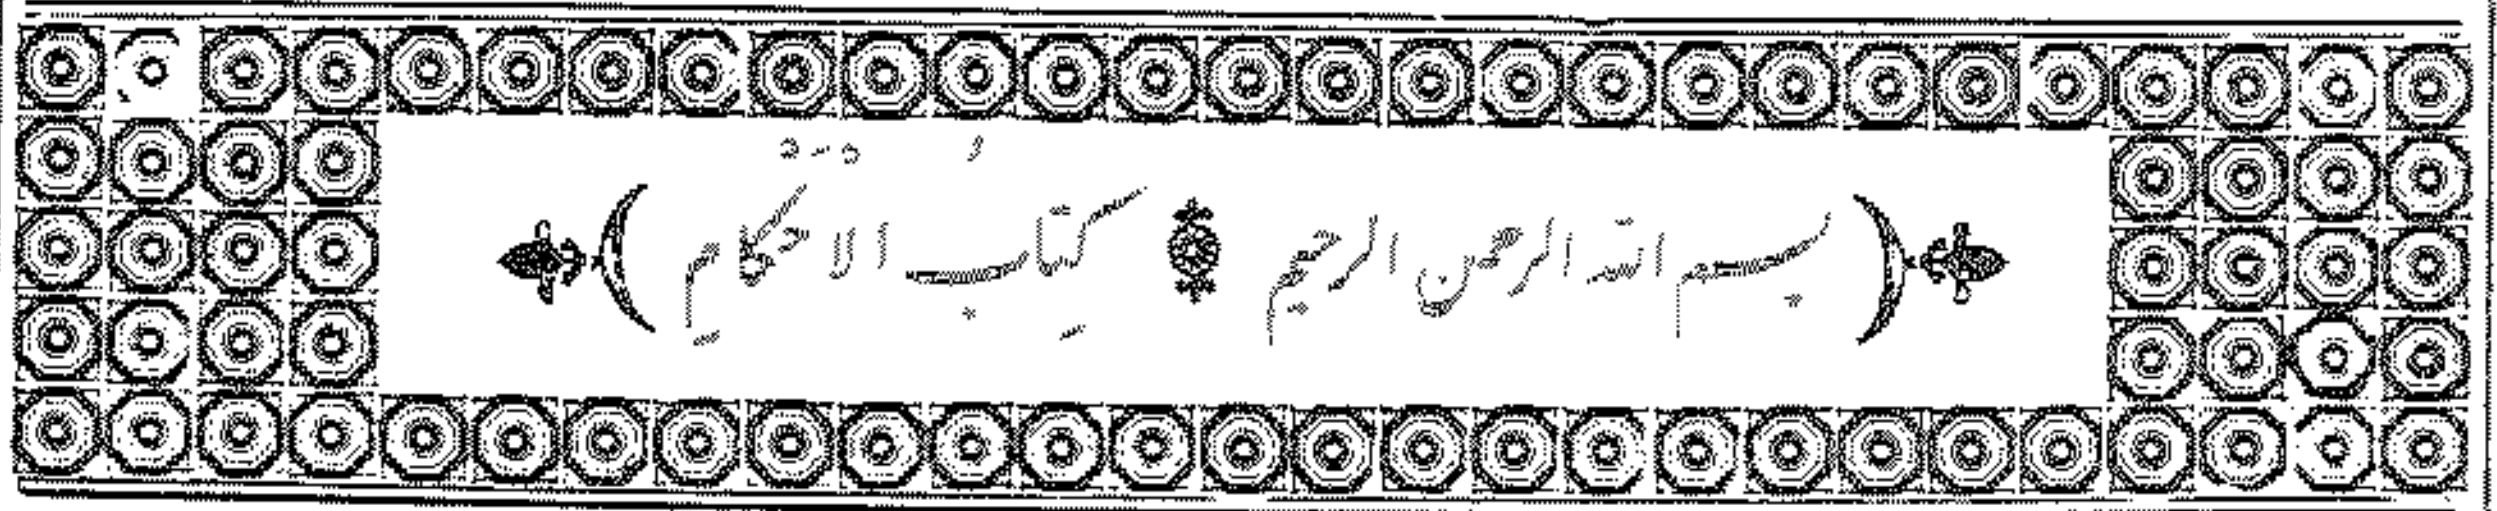 بسم الله الرحمن الرحيم كتاب الاحكام